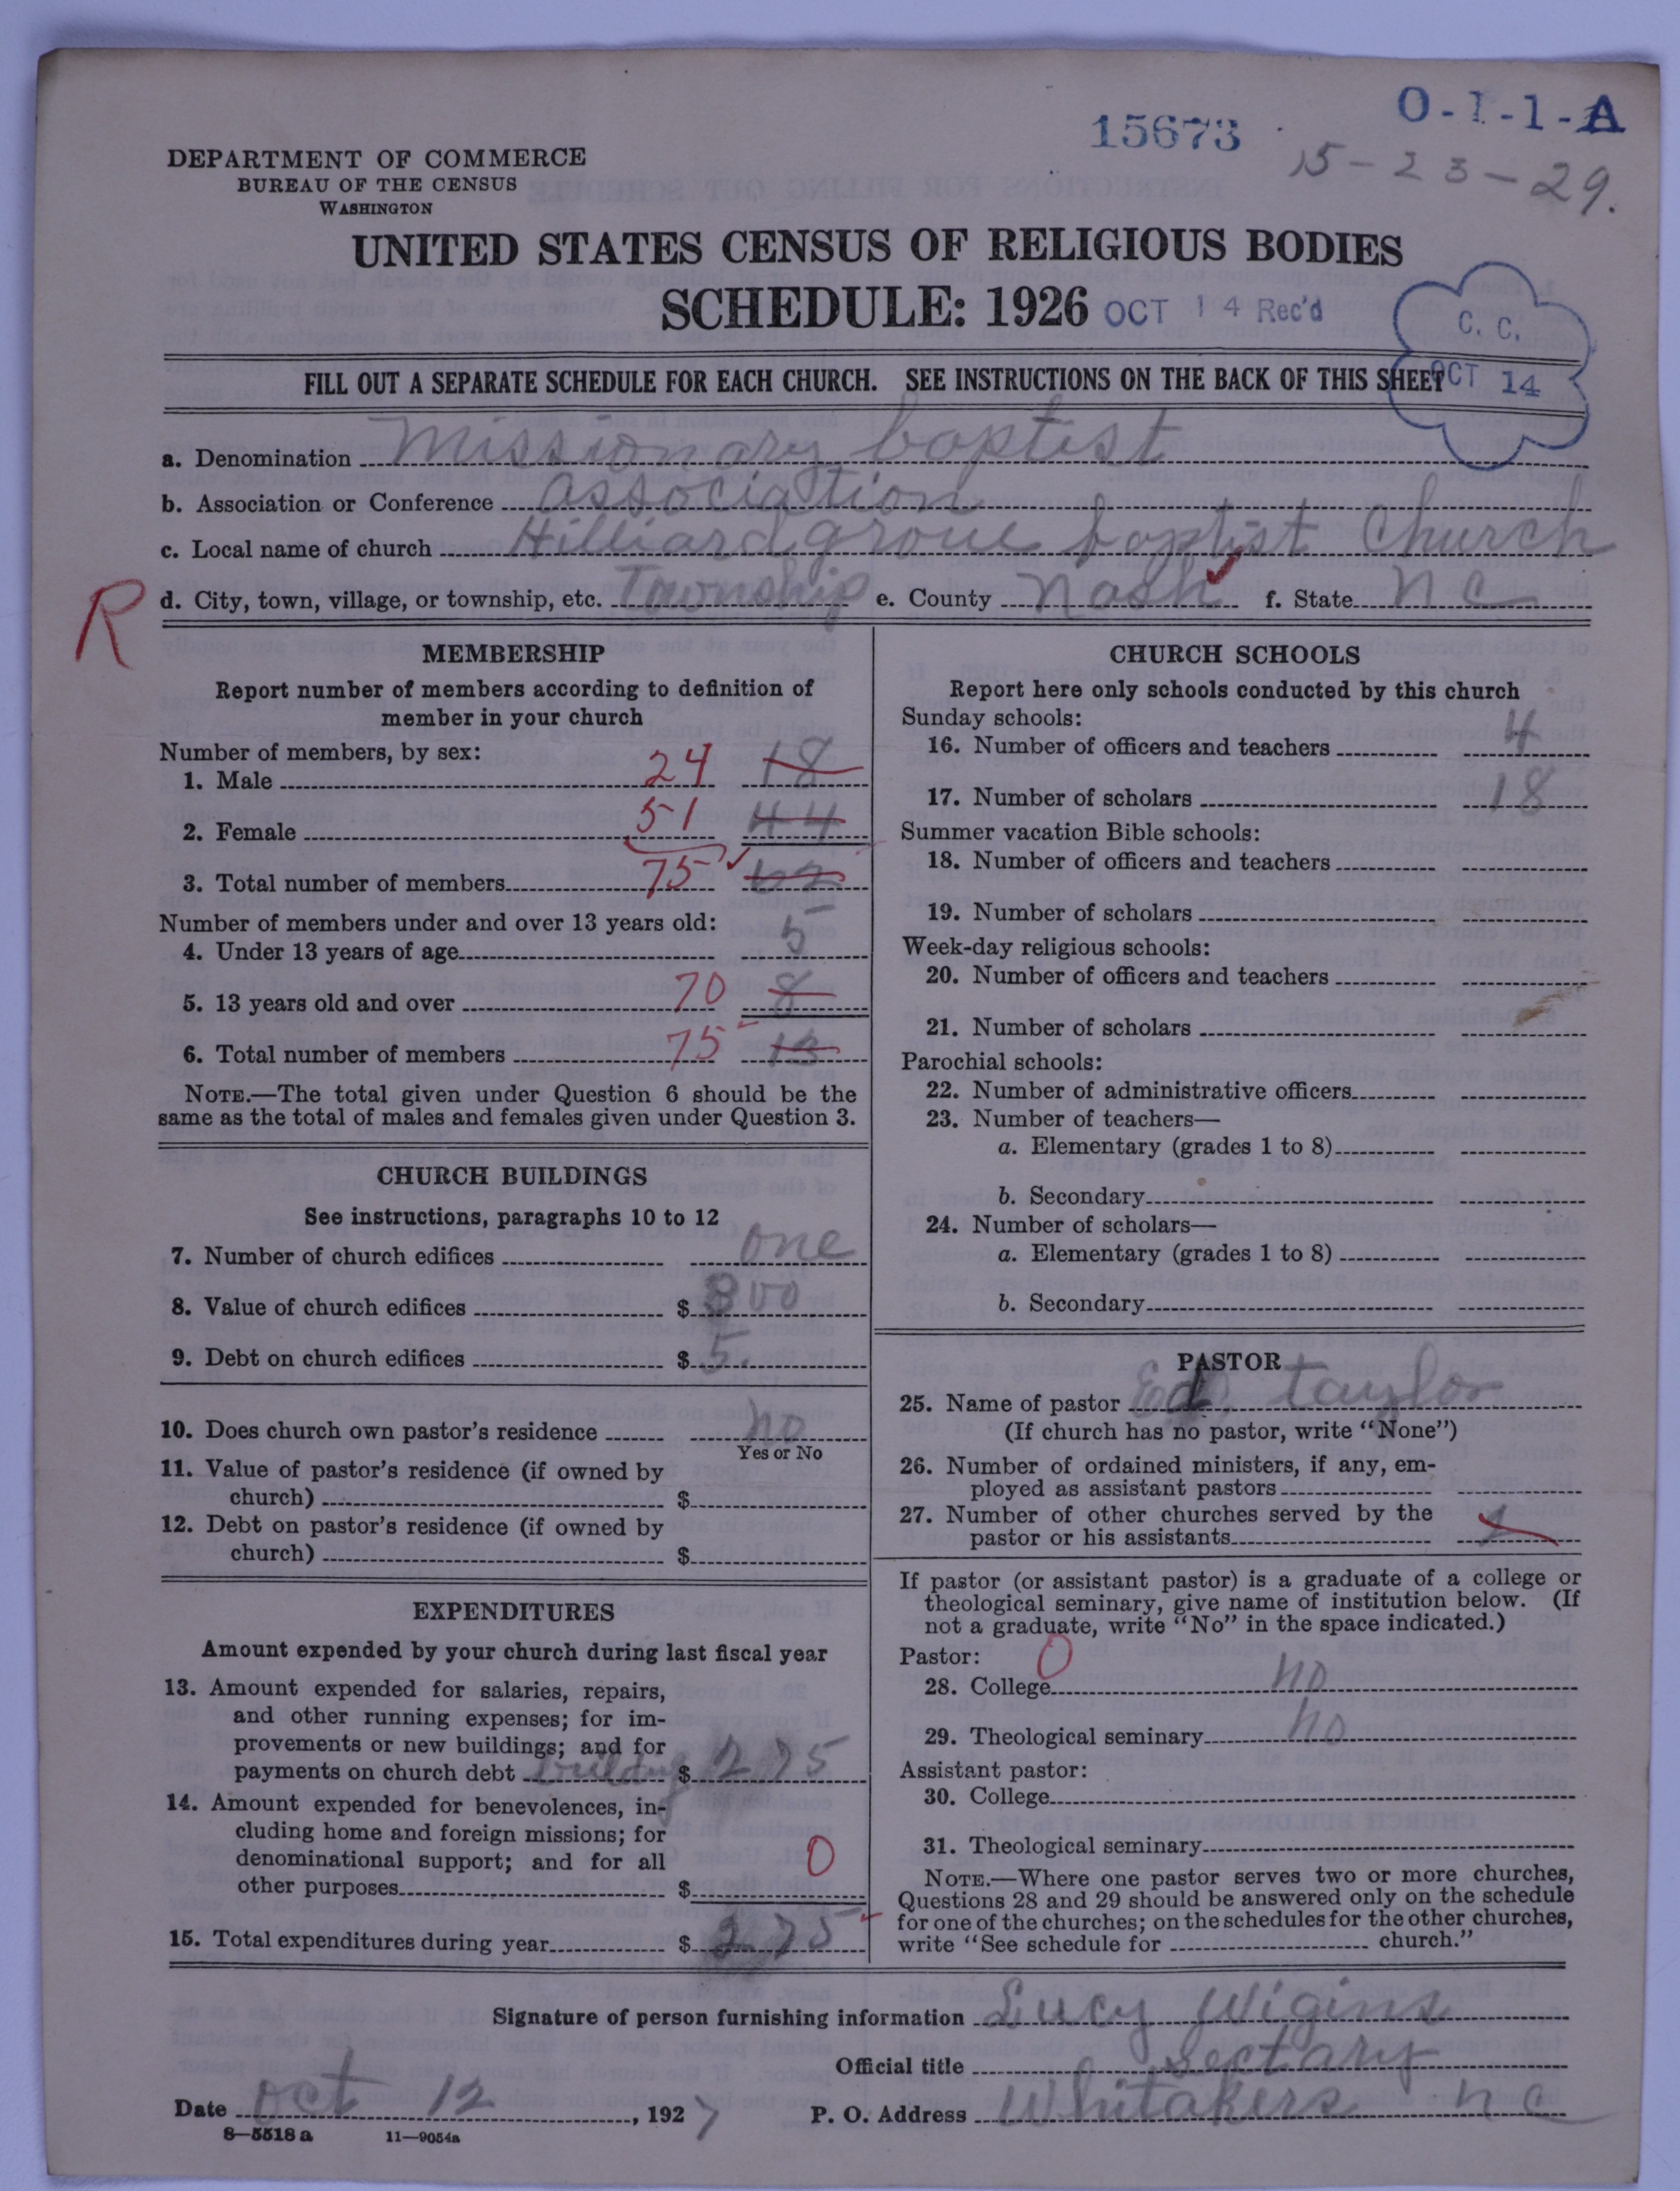 15673
O-1-1-A
15-23-29.
DEPARTMENT OF COMMERCE
BUREAU OF THE CENSUS
WASHINGTON
UNITED STATES CENSUS OF RELIGIOUS BODIES
SCHEDULE: 1926 OCT 14 Rec'd
C. C.
OCT 14
FILL OUT A SEPARATE SCHEDULE FOR EACH CHURCH. SEE INSTRUCTIONS ON THE BACK OF THIS SHEET
a. Denomination Missionary baptist
b. Association or Conference association
c. Local name of church Hilliard grove baptist Church
R
d. City, town, village, or township, etc. Township e. County Nash f. State N C
MEMBERSHIP
Report number of members according to definition of
member in your church
Number of members, by sex:
1. Male 24 18
2. Female 51 44
3. Total number of members 75 62
Number of members under and over 13 years old:
4. Under 13 years of age 5
5. 13 years old and over 70 8
6. Total number of members 75 13
NOTE.—The total given under Question 6 should be the
same as the total of males and females given under Question 3.
CHURCH BUILDINGS
See instructions, paragraphs 10 to 12
7. Number of church edifices one
8. Value of church edifices $ 800
9. Debt on church edifices $ 5.
10. Does church own pastor's residence no
Yes or No
11. Value of pastor's residence (if owned by
church) $
12. Debt on pastor's residence (if owned by
church) $
EXPENDITURES
Amount expended by your church during last fiscal year
13. Amount expended for salaries, repairs,
and other running expenses; for im-
provements or new buildings; and for
payments on church debt building $ 275
14. Amount expended for benevolences, in-
cluding home and foreign missions; for
denominational support; and for all
other purposes $ 0
15. Total expenditures during year $ 275
CHURCH SCHOOLS
Report here only schools conducted by this church
Sunday schools:
16. Number of officers and teachers 4
17. Number of scholars 18
Summer vacation Bible schools:
18. Number of officers and teachers
19. Number of scholars
Week-day religious schools:
20. Number of officers and teachers
21. Number of scholars
Parochial schools:
22. Number of administrative officers
23. Number of teachers—
a. Elementary (grades 1 to 8)
b. Secondary
24. Number of scholars—
a. Elementary (grades 1 to 8)
b. Secondary
PASTOR
25. Name of pastor Ed. taylor
(If church has no pastor, write "None")
26. Number of ordained ministers, if any, em-
ployed as assistant pastors
27. Number of other churches served by the
pastor or his assistants 1
If pastor (or assistant pastor) is a graduate of a college or
theological seminary, give name of institution below. (If
not a graduate, write "No" in the space indicated.)
Pastor: 0
28. College no
29. Theological seminary no
Assistant pastor:
30. College
31. Theological seminary
NOTE.—Where one pastor serves two or more churches,
Questions 28 and 29 should be answered only on the schedule
for one of the churches; on the schedules for the other churches,
write "See schedule for church."
Signature of person furnishing information Lucy Wigins
Official title Sectary
Date Oct 12, 1927 P. O. Address Whitakers N C
8—5518 a 11—9054a